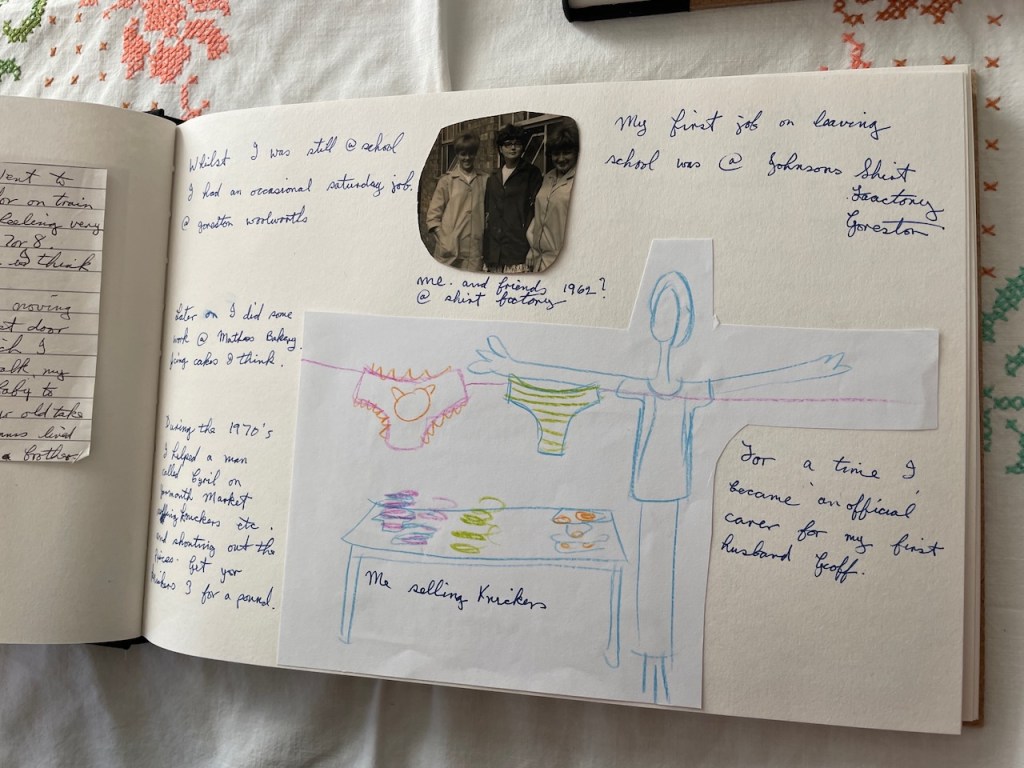 Went to
or on train
feeling very
7 or 8.
I think
moving
door
I
my
baby to
old take
lived
a brother
Whilst I was still @ school
I had an occasional saturday job.
@ goreston woolworths
Later on I did some
work @ Mathes Bakery
cakes I think.
During the 1970's
I helped a man
called Cyril on
Market
knickers etc.
and shouting out the
Prices. Get yer
knickers 3 for a pound.
me. and friends 1962?
@ shirt factory
My first job on leaving
school was @ Johnsons Shirt
Faactony
Goreston
Me selling Knickers
For a time I
became an official
carer for my first
husband Geoff.